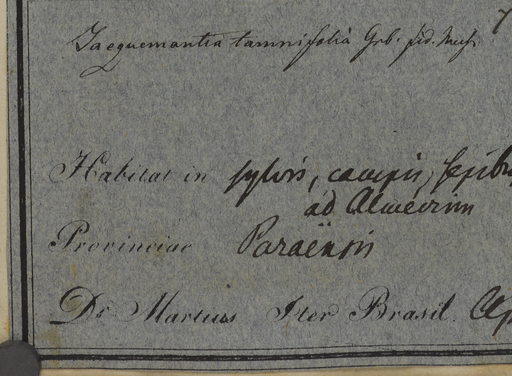 Jacquemontia tamnifolia Grb. fid. Meisn
Habitat in sylvis, campis, sepibus
ad Almeirim
Provinciae Paraënsis
Dr Martius Iter Brasil. Ap